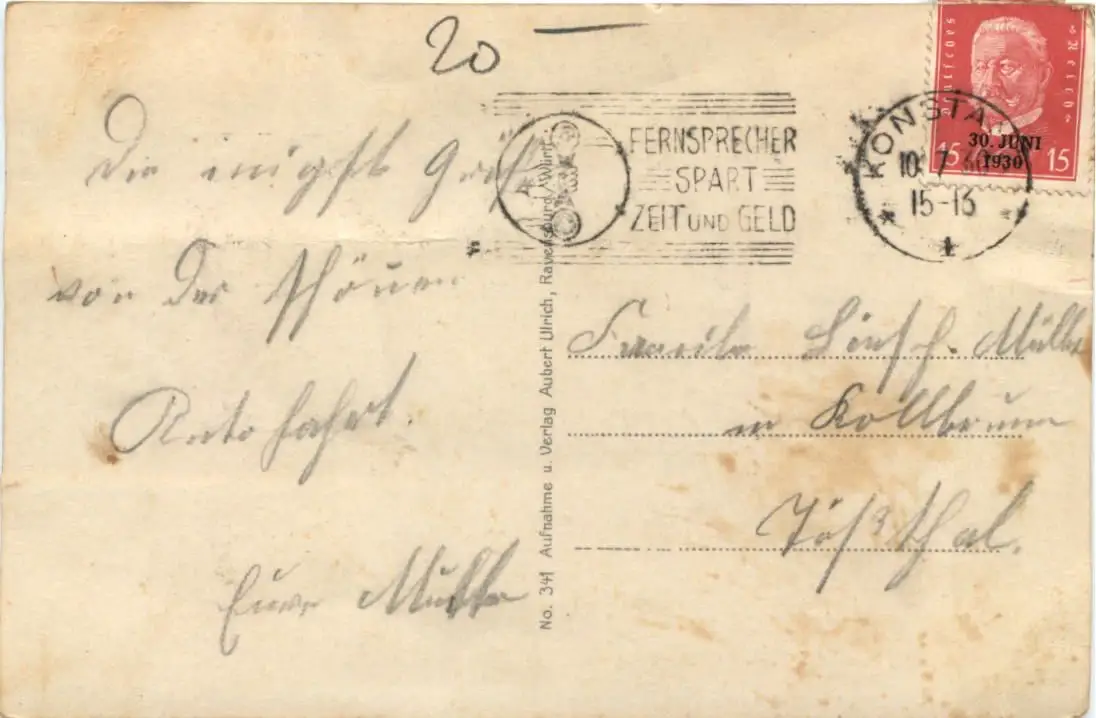 20 —
Die innigst. Grüß
von der schönen
Autofahrt.
Eure Mutter
No. 341 Aufnahme u. Verlag Aubert Ulrich, Ravensburg/Württ
FERNSPRECHER
SPART
ZEIT UND GELD
KONSTA
10. 7. 30
15-16
* 1 *
Deutsches Reich
30. JUNI
1930
15 15
Familie Müller
in Kollbrunn
Tößthal.